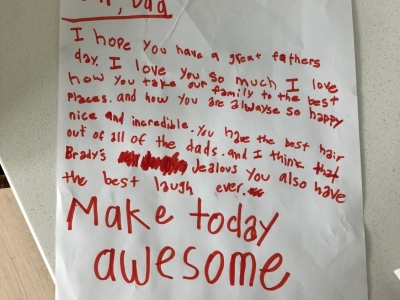 Dad
I hope you have a great fathers
day. I love you so much I love
how you take our family to the best
Places. and how you are alwayse so happy
nice and incredible. You have the best hair
out of all of the dads. and I think that
Brady's Jealous You also have
the best laugh ever.
Make today
awesome